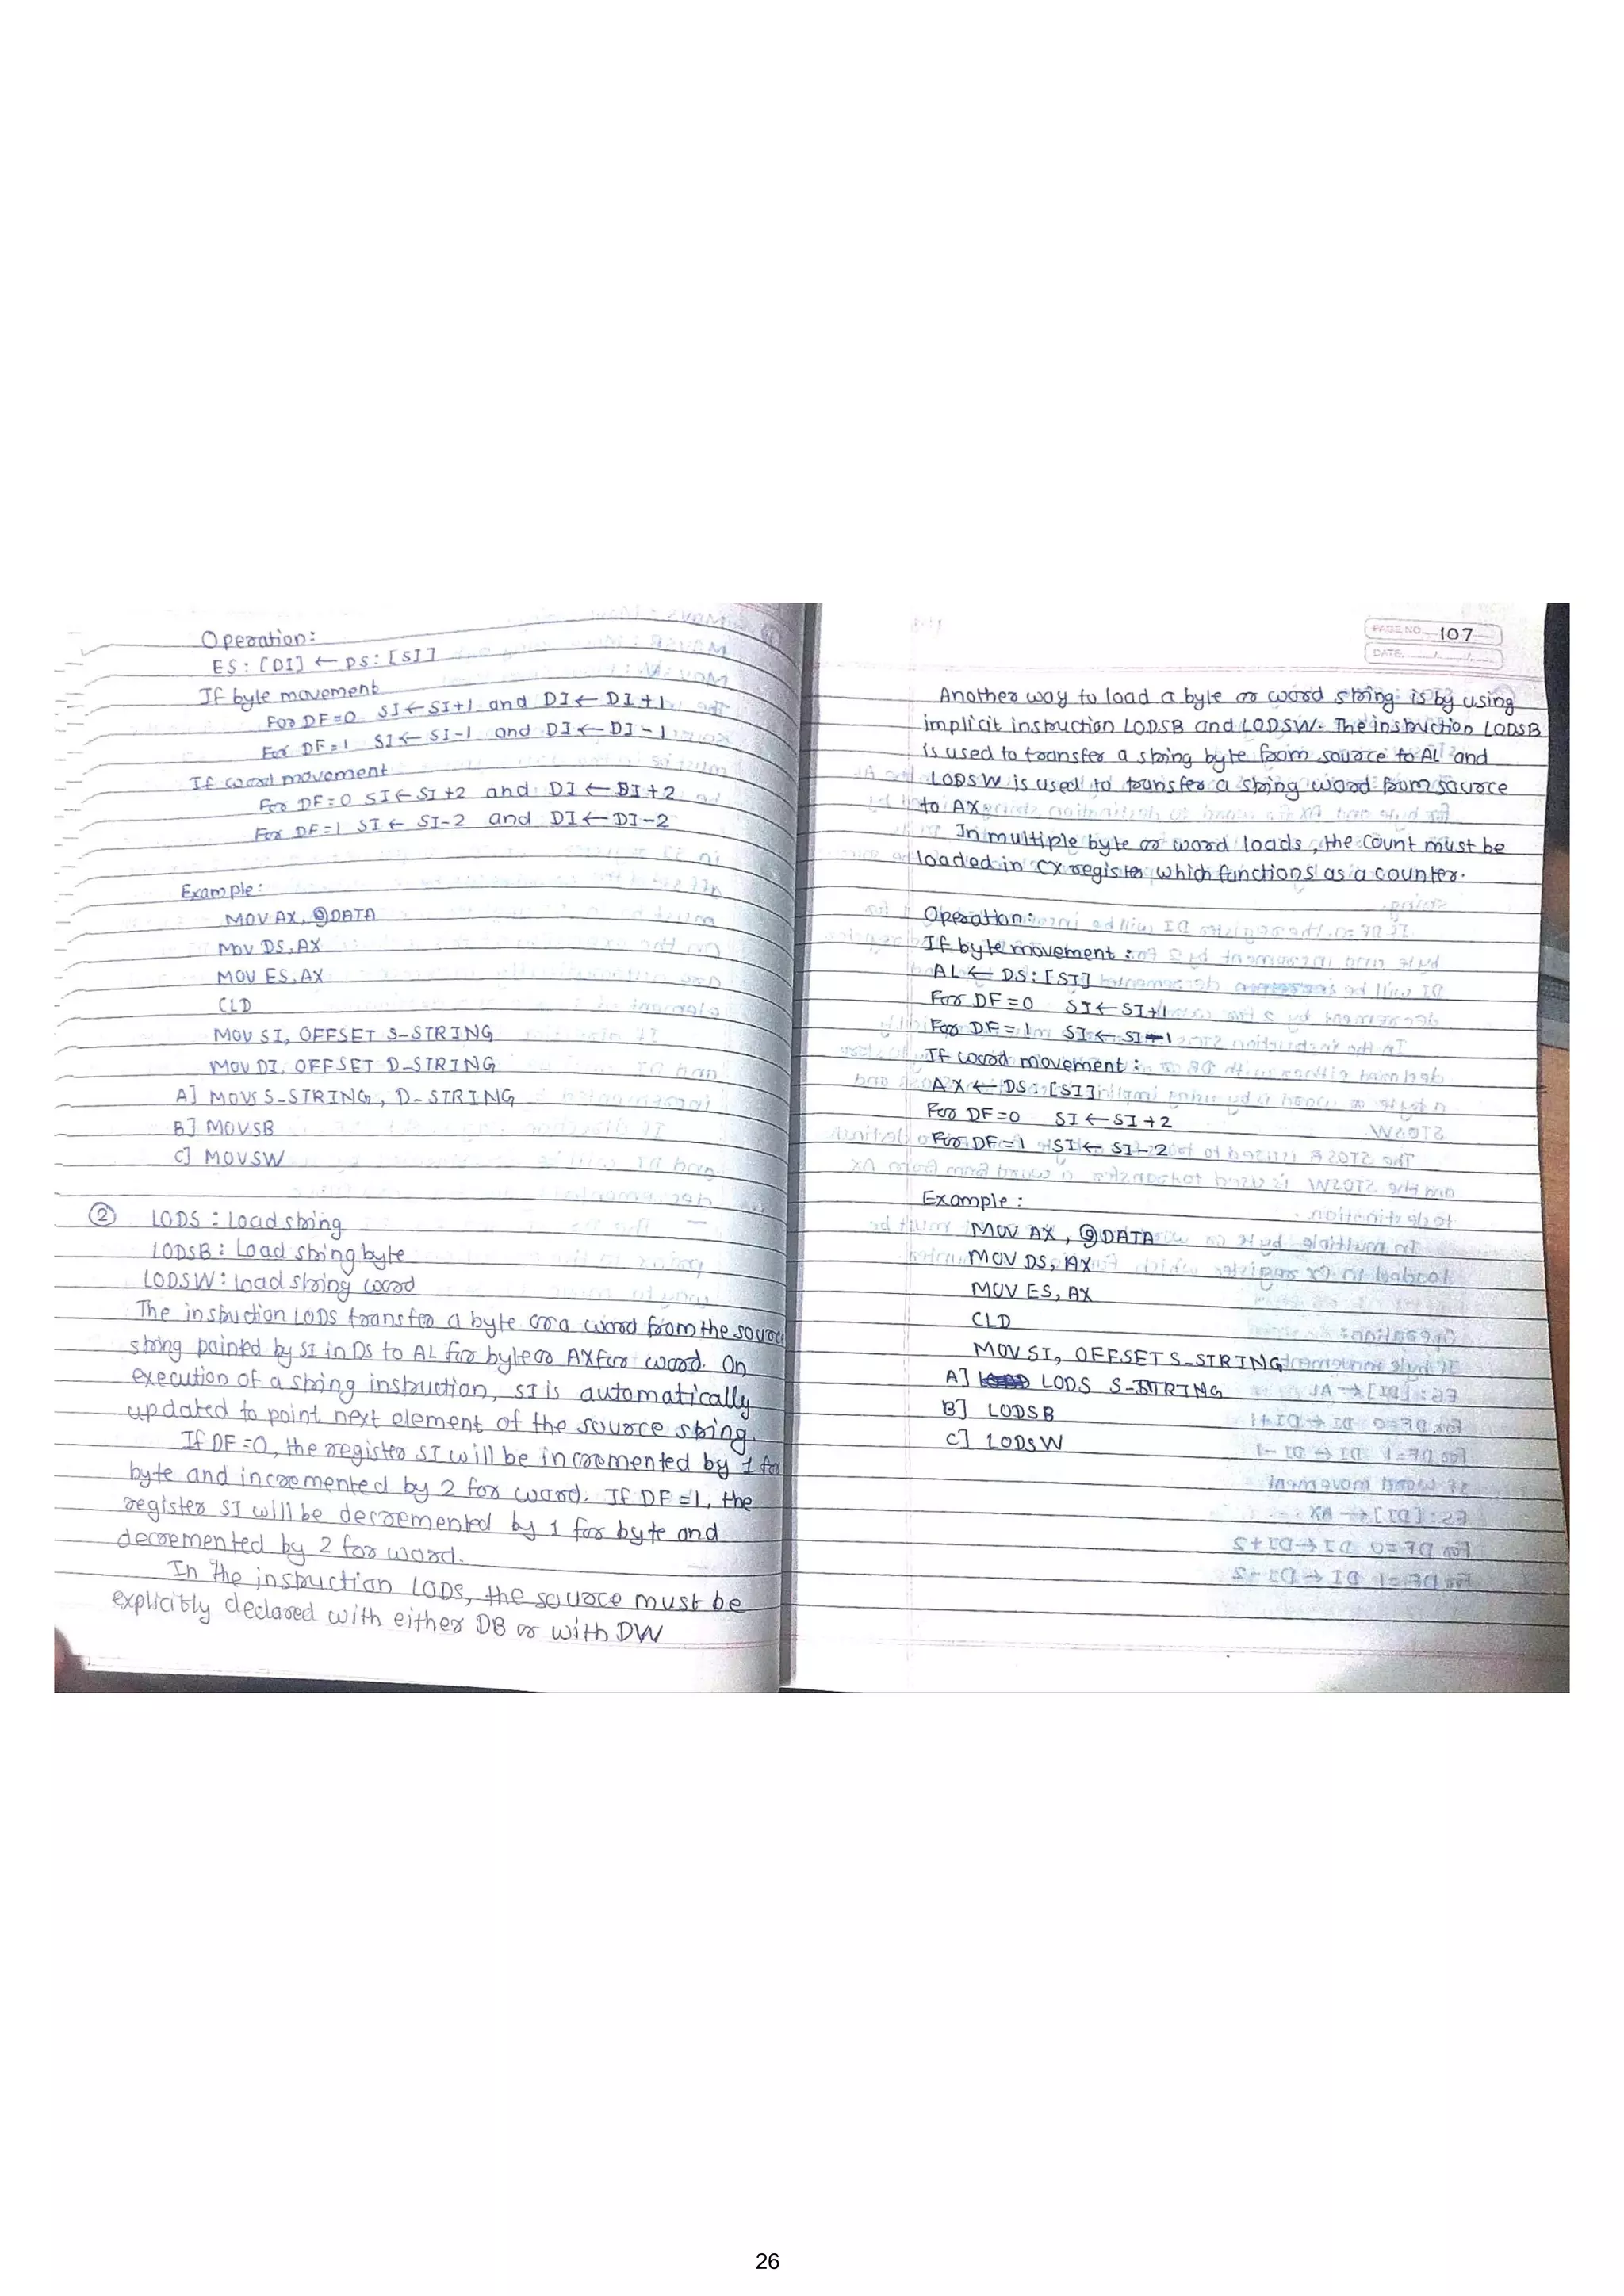 Operation:
ES : [DI] ← DS : [SI]
If byte movement
For DF=0 SI←SI+1 and DI← DI+1
For DF=1 SI←SI-1 and DI←DI-1
If word movement
For DF=0 SI←SI+2 and DI←DI+2
For DF=1 SI← SI-2 and DI←DI-2
Example:
MOV AX, @DATA
MOV DS, AX
MOV ES, AX
CLD
MOV SI, OFFSET S-STRING
MOV DI, OFFSET D-STRING
A] MOVS S-STRING, D-STRING
B] MOVSB
C] MOVSW
② LODS : load string
LODSB : Load string byte
LODSW : load string word
The instruction LODS transfer a byte or a word from the source
string pointed by SI in DS to AL for byte or AX for word. On
execution of a string instruction, SI is automatically
updated to point next element of the source string.
If DF=0, the register SI will be incremented by 1 for
byte and incremented by 2 for word. If DF=1, the
register SI will be decremented by 1 for byte and
decremented by 2 for word.
In the instruction LODS, the source must be
explicitly declared with either DB or with DW
PAGE NO. 107
DATE: / /
Another way to load a byte or word string is by using
implicit instruction LODSB and LODSW. The instruction LODSB
is used to transfer a string byte from source to AL and
LODSW is used to transfer a string word from source
to AX
In multiple byte or word loads, the count must be
loaded in CX register which functions as a counter.
Operation:
If byte movement :
AL ← DS : [SI]
For DF=0 SI←SI+1
For DF=1 SI← SI-1
If word movement :
AX ← DS : [SI]
For DF=0 SI←SI+2
For DF=1 SI← SI-2
Example :
MOV AX, @DATA
MOV DS, AX
MOV ES, AX
CLD
MOV SI, OFFSET S-STRING
A] LODS S-STRING
B] LODSB
C] LODSW
26